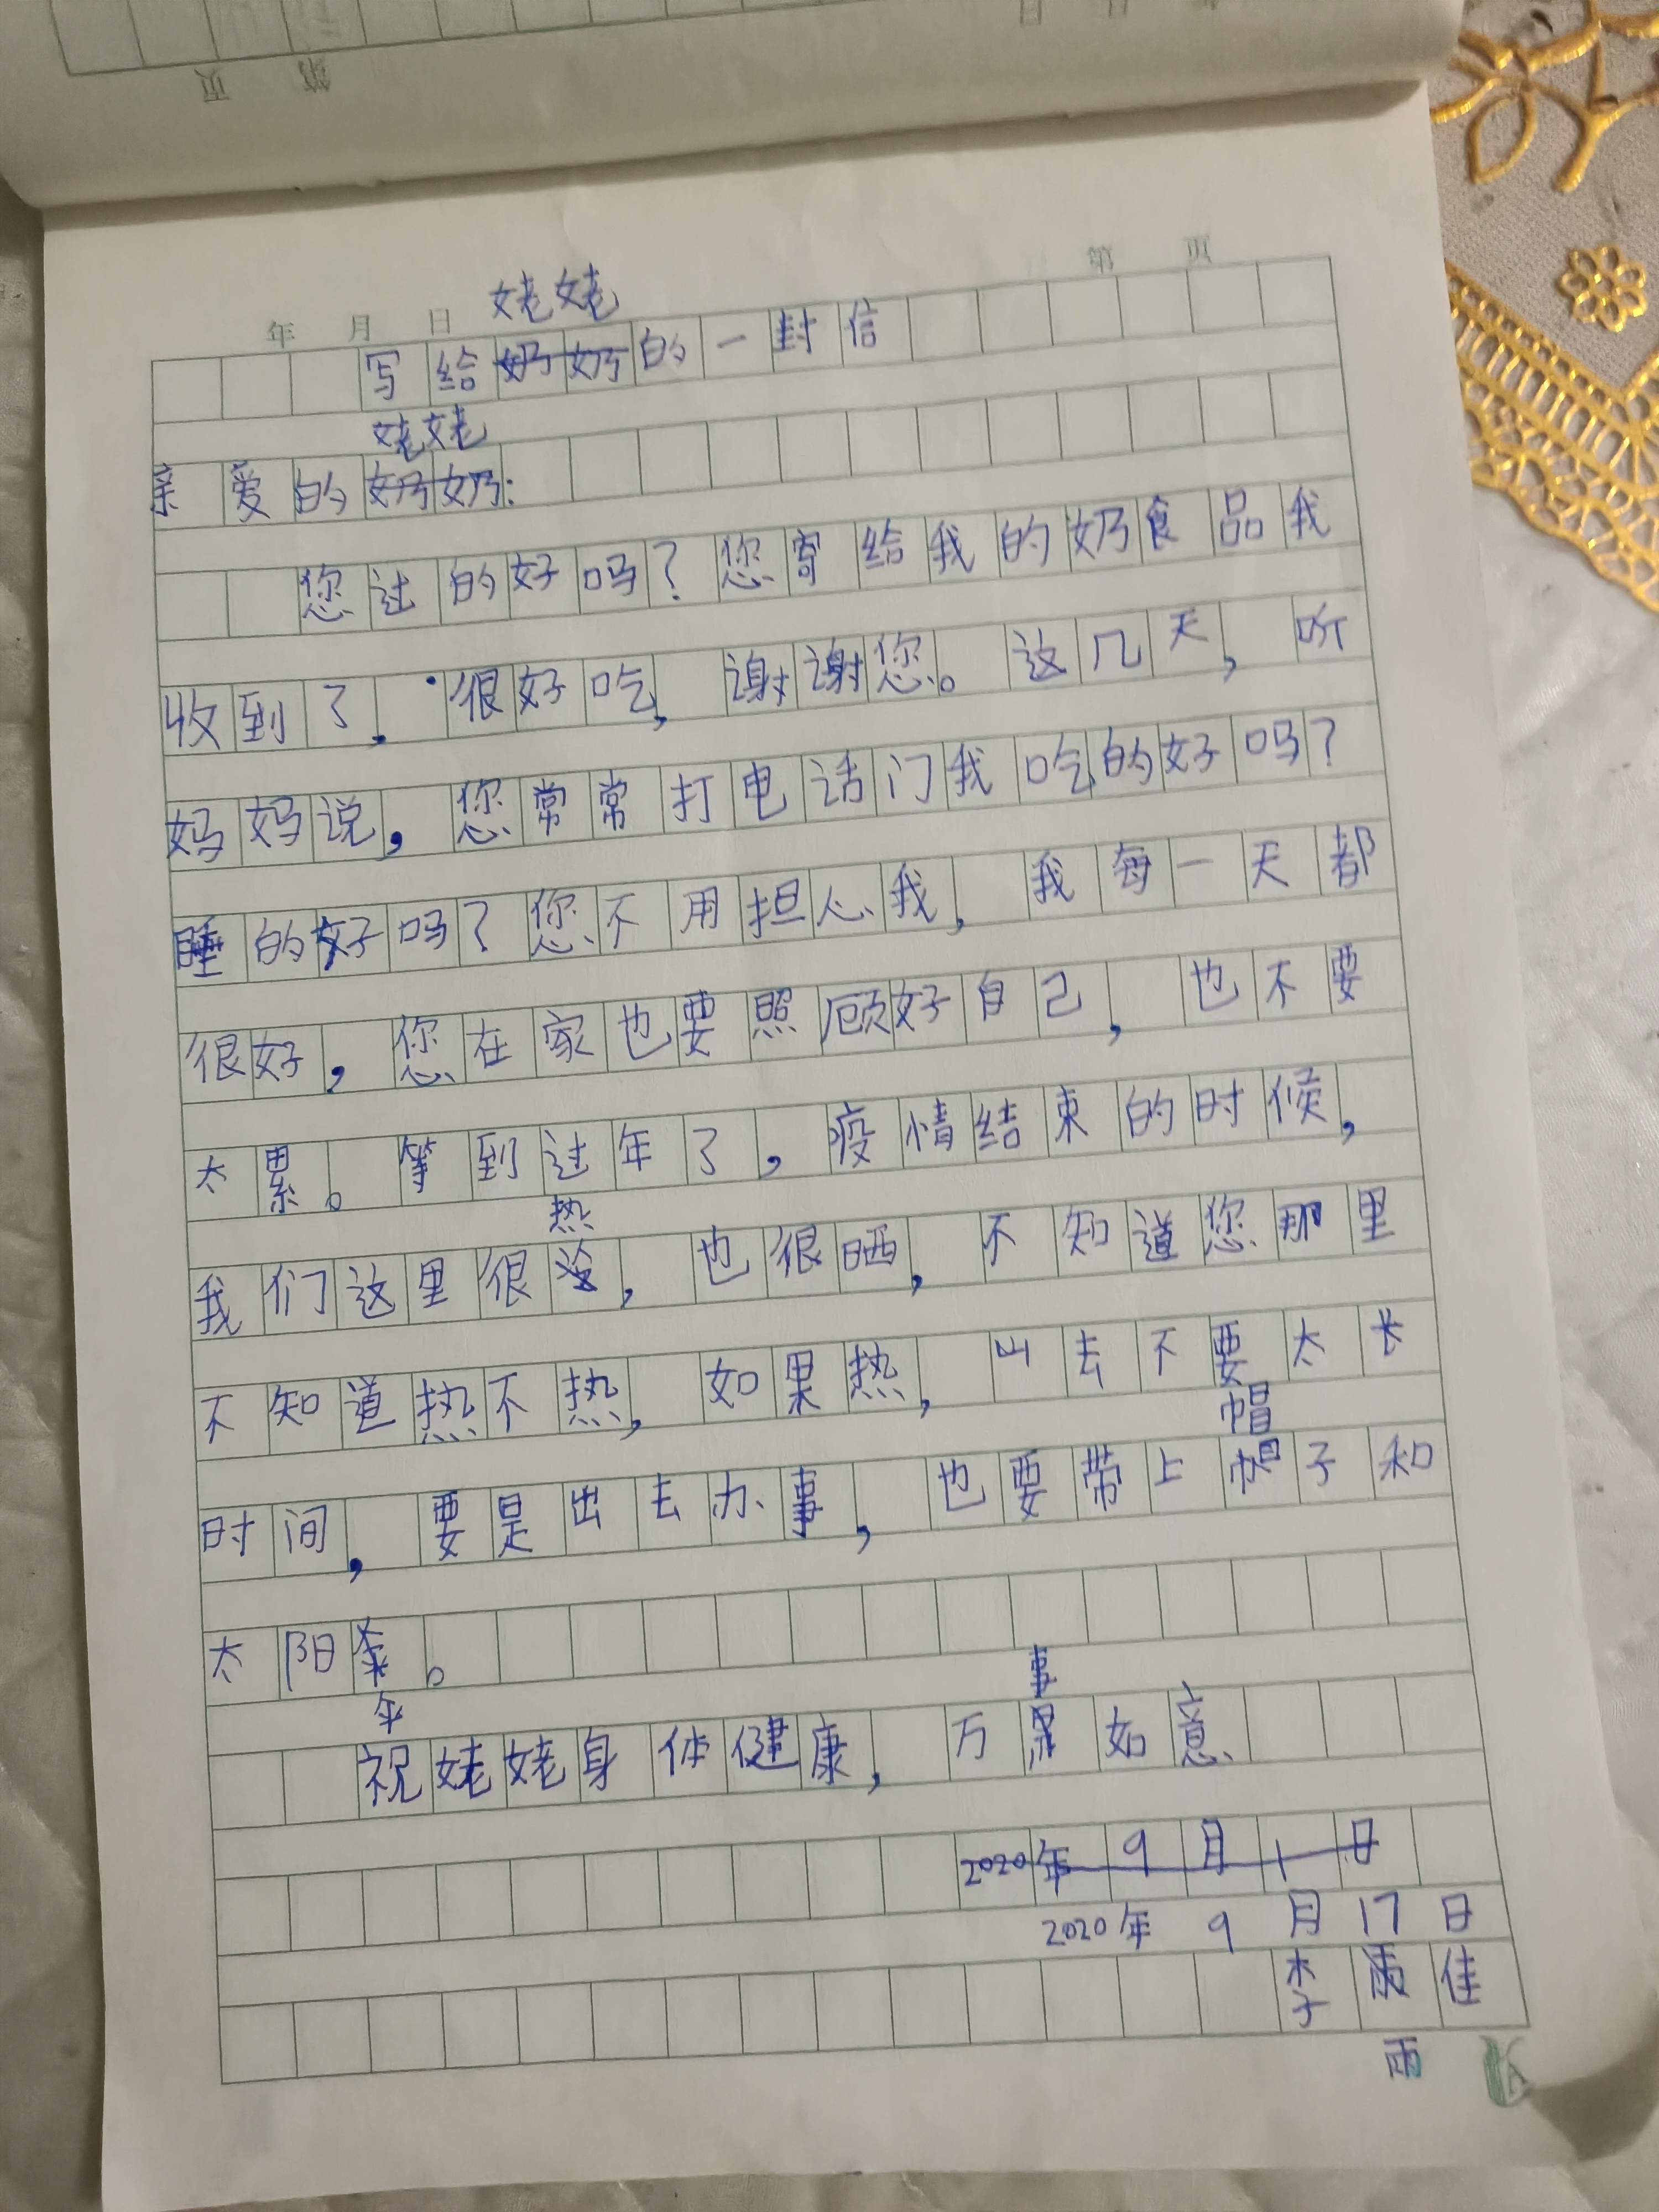 第 页
年 月 日
第 页
姥姥
写给奶奶的一封信
姥姥
亲爱的奶奶:
您过的好吗?您寄给我的奶食品我
收到了,很好吃,谢谢您。这几天,听
妈妈说,您常常打电话门我吃的好吗?
睡的好吗?您不用担心我,我每一天都
很好,您在家也要照顾好自己,也不要
太累。等到过年了,疫情结束的时候,
热
我们这里很,也很晒,不知道您那里
不知道热不热,如果热,出去不要太长
帽
时间,要是出去办事,也要带上帽子和
太阳。
伞
事
祝姥姥身体健康,万如意
2020年9月1日
2020年9月17日
李雨佳
雨